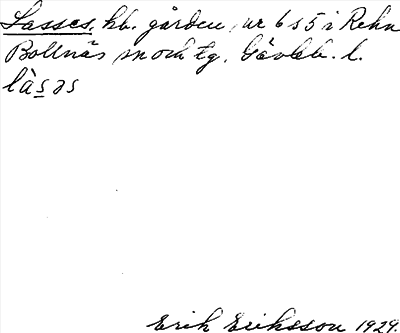 Lasses, hb. gården, nr 6 s 5 i Rehn
Bollnäs sn och tg. Gävleb. l.
làsəs
Erik Eriksson 1929.